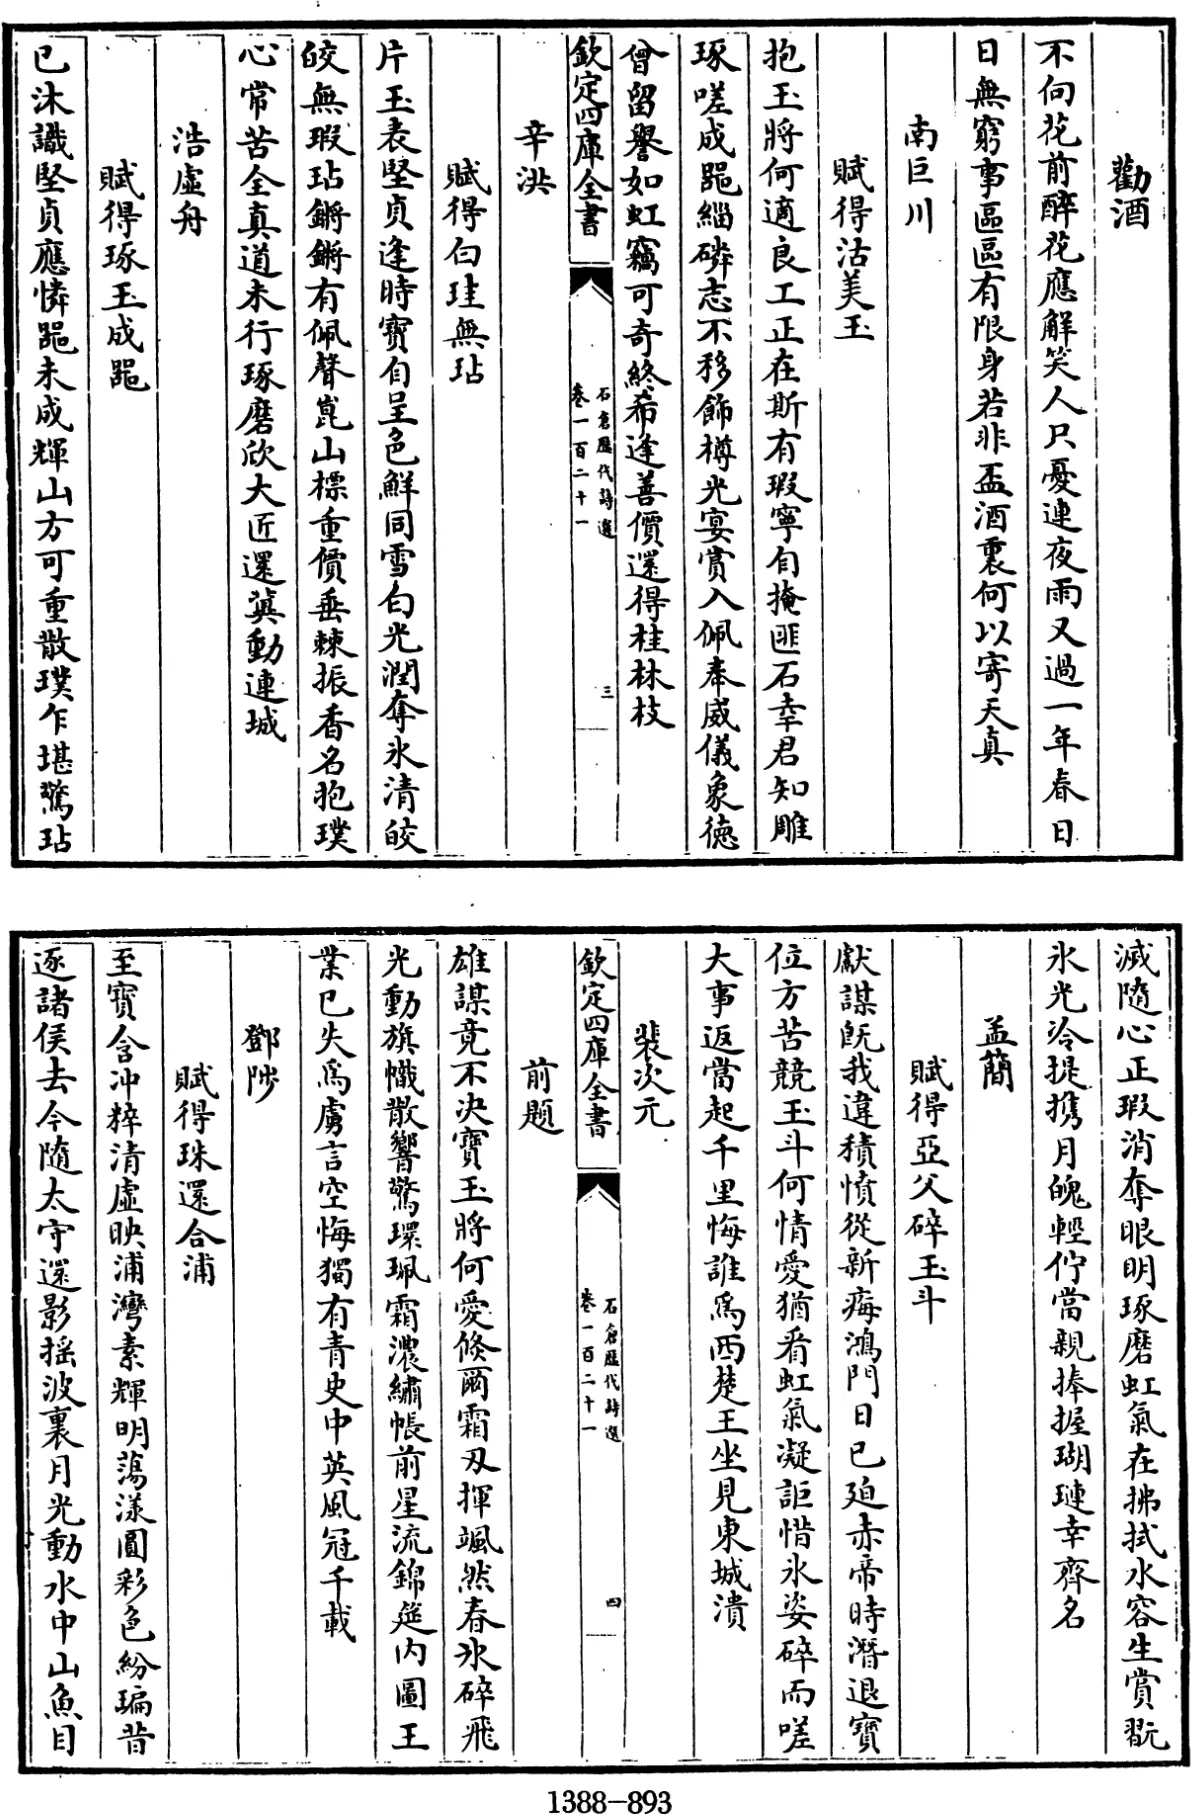 勸酒
不向花前醉花應解笑人只憂連夜雨又過一年春日
日無窮事區區有限身若非盃酒裏何以寄天真
南巨川
賦得沽美玉
抱玉將何適良工正在斯有瑕寧自掩匪石幸君知雕
琢嗟成器緇磷志不移飾樽光宴賞入佩奉威儀象德
曾留譽如虹竊可奇終希逢善價還得桂林枝
欽定四庫全書
石倉歷代詩選
卷一百二十一
三
辛洪
賦得白珪無玷
片玉表堅貞逢時寶自呈色鮮同雪白光潤奪氷清皎
皎無瑕玷鏘鏘有佩聲崑山標重價垂棘振香名抱璞
心常苦全真道未行琢磨欣大匠還冀動連城
浩虛舟
賦得琢玉成器
已沐識堅貞應憐器未成輝山方可重散璞乍堪驚玷
滅隨心正瑕消奪眼明琢磨虹氣在拂拭水容生賞翫
氷光冷提攜月魄輕佇當親捧握瑚璉幸齊名
孟簡
賦得亞父碎玉斗
獻謀既我違積憤從新痗鴻門日已廹赤帝時潛退寶
位方苦競玉斗何情愛猶看虹氣凝詎惜氷姿碎而嗟
大事返當起千里悔誰爲西楚王坐見東城潰
裴次元
欽定四庫全書
石倉歷代詩選
卷一百二十一
四
前題
雄謀竟不決寶玉將何愛倐爾霜刃揮颯然春氷碎飛
光動旗幟散響驚環珮霜濃繡帳前星流錦筵内圖王
業已失爲虜言空悔獨有青史中英風冠千載
鄧陟
賦得珠還合浦
至寶含冲粹清虛映浦灣素輝明蕩漾圓彩色紛㻞昔
逐諸侯去今隨太守還影搖波裏月光動水中山魚目
1388-893